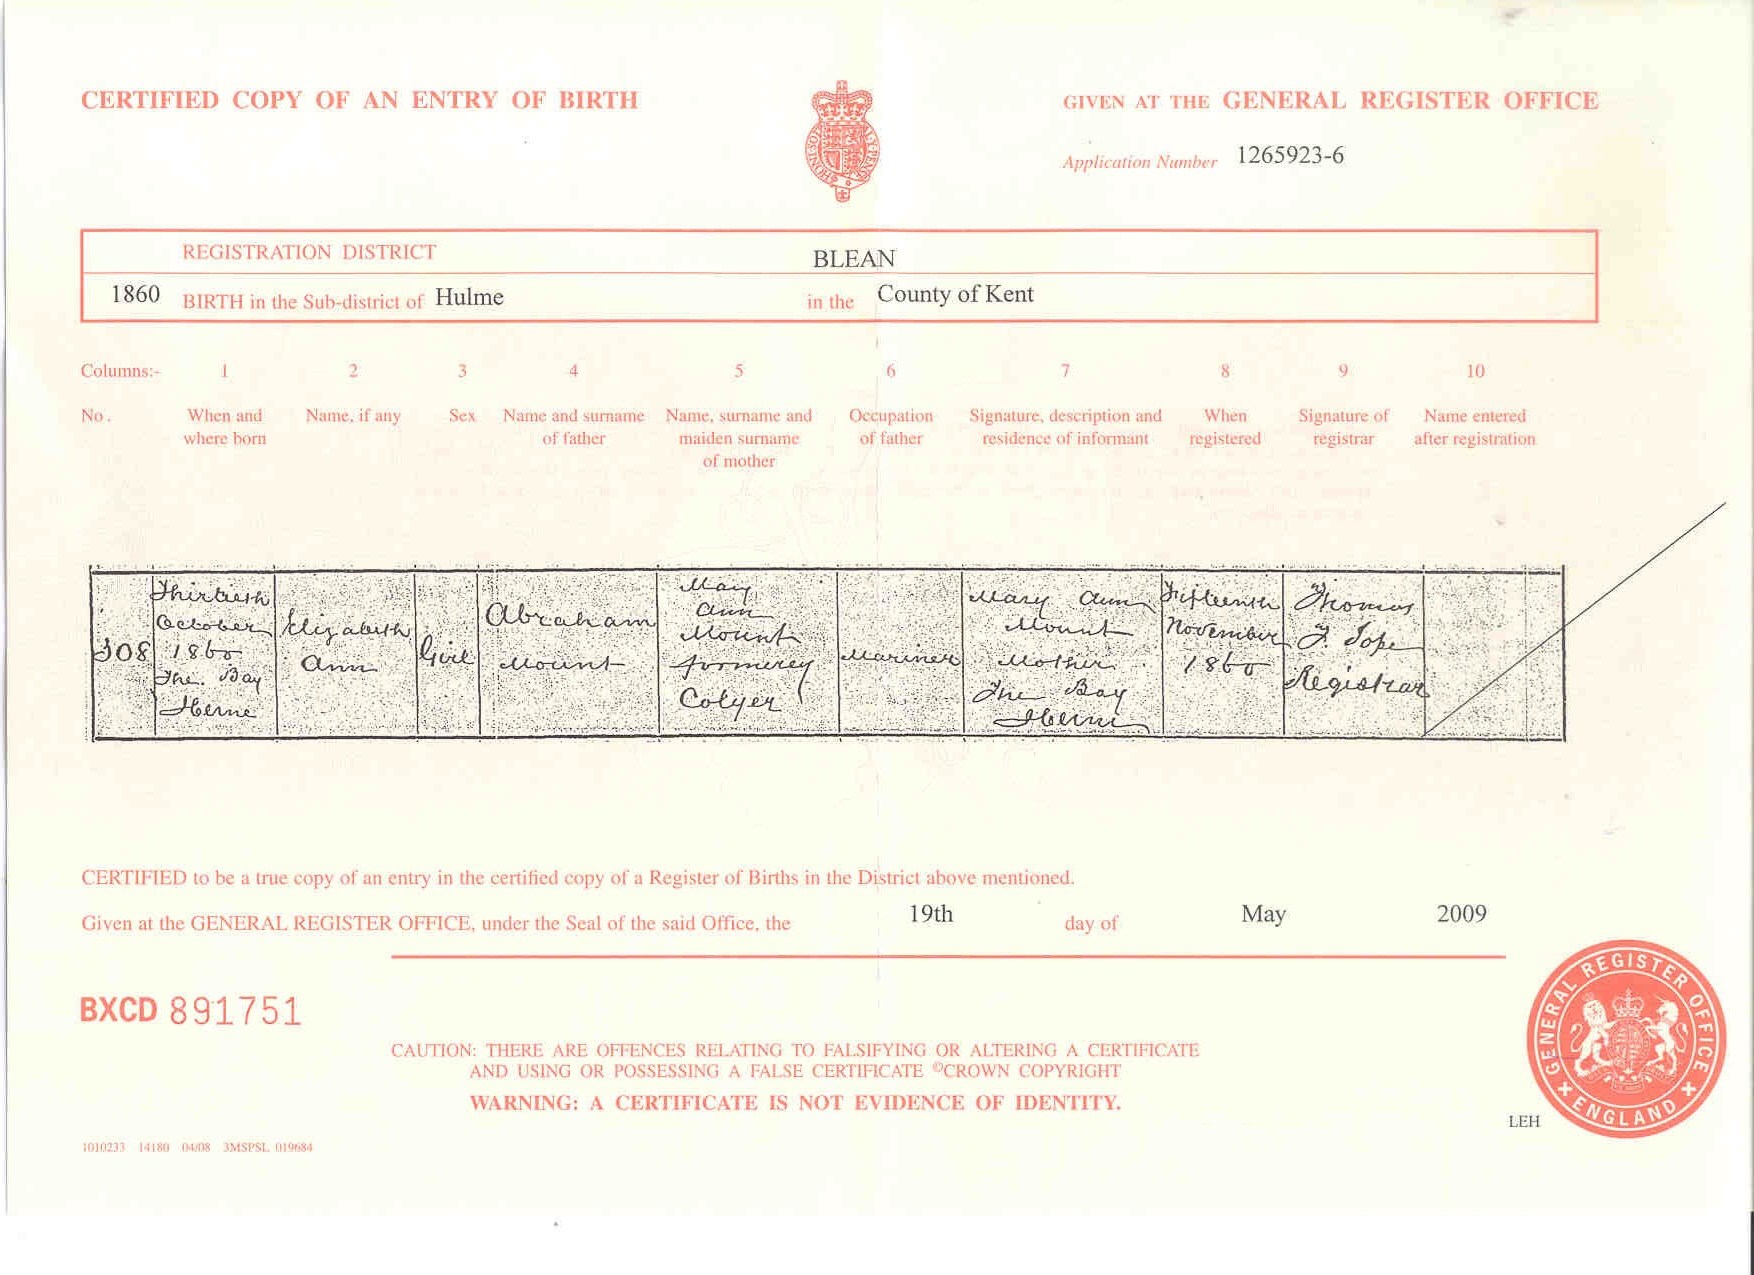 CERTIFIED COPY OF AN ENTRY OF BIRTH
GIVEN AT THE GENERAL REGISTER OFFICE
Application Number 1265923-6
REGISTRATION DISTRICT BLEAN
1860 BIRTH in the Sub-district of Hulme in the County of Kent
Columns:- 1 2 3 4 5 6 7 8 9 10
No. When and where born Name, if any Sex Name and surname of father Name, surname and maiden surname of mother Occupation of father Signature, description and residence of informant When registered Signature of registrar Name entered after registration
308
Thirtieth
October
1860
The Bay
Herne
Elizabeth
Ann
Girl
Abraham
Mount
Mary
Ann
Mount
formerly
Colyer
Mariner
Mary Ann
Mount
Mother
The Bay
Herne
Fifteenth
November
1860
Thomas
Registrar
CERTIFIED to be a true copy of an entry in the certified copy of a Register of Births in the District above mentioned.
Given at the GENERAL REGISTER OFFICE, under the Seal of the said Office, the 19th day of May 2009
BXCD 891751
CAUTION: THERE ARE OFFENCES RELATING TO FALSIFYING OR ALTERING A CERTIFICATE
AND USING OR POSSESSING A FALSE CERTIFICATE ©CROWN COPYRIGHT
WARNING: A CERTIFICATE IS NOT EVIDENCE OF IDENTITY.
LEH
GENERAL REGISTER OFFICE
ENGLAND
1010233 14180 04/08 3MSPSL 019684